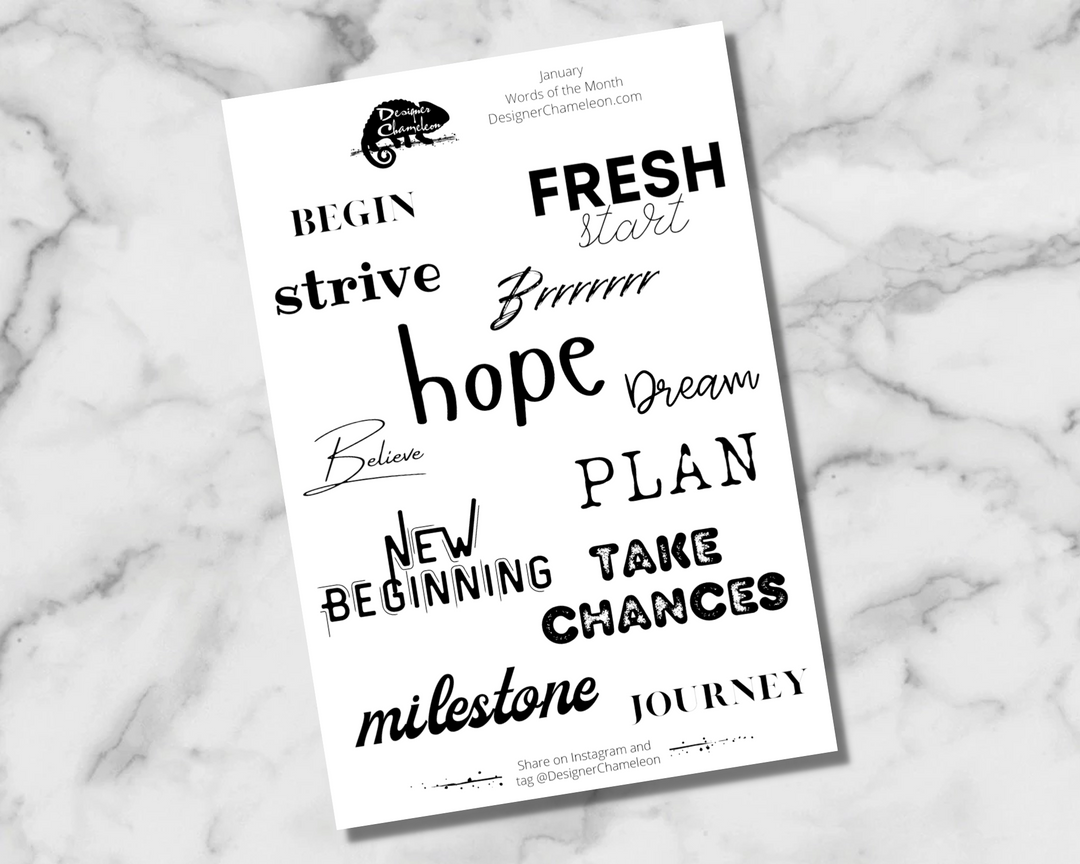 Designer
Chameleon
January
Words of the Month
DesignerChameleon.com
BEGIN
FRESH
start
strive
Brrrrrrr
hope
Dream
Believe
PLAN
NEW
BEGINNING
TAKE
CHANCES
milestone
JOURNEY
Share on Instagram and
tag @DesignerChameleon